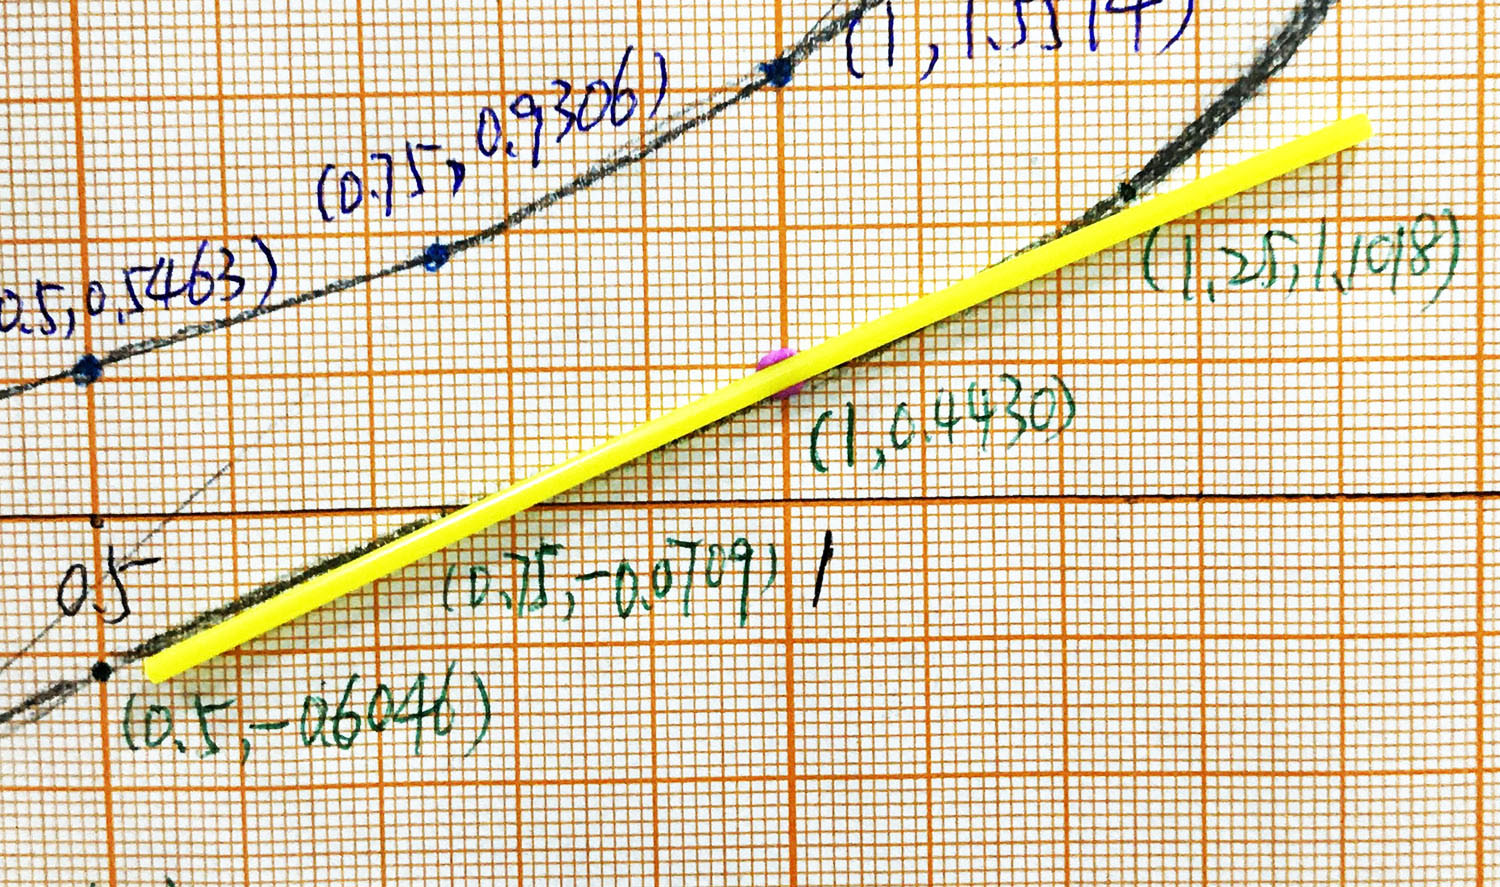 (1, 1.5574)
(0.75, 0.9306)
0.5, 0.5463)
(1.25, 1.1098)
(1, 0.4430)
0.5
(0.75, -0.0709)
1
(0.5, -0.6046)